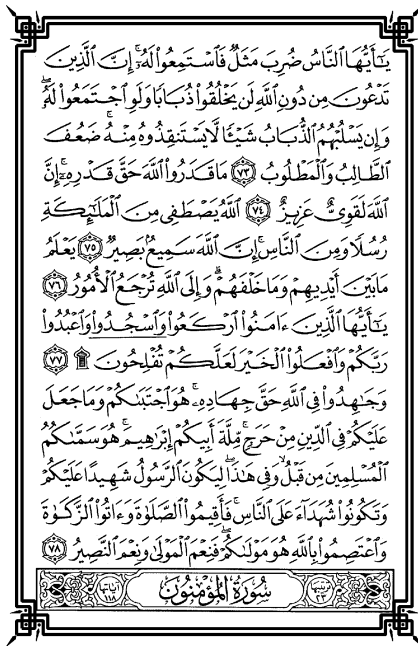 يَـٰٓأَيُّهَا ٱلنَّاسُ ضُرِبَ مَثَلٌ فَٱسْتَمِعُوا۟ لَهُۥٓ ۚ إِنَّ ٱلَّذِينَ
تَدْعُونَ مِن دُونِ ٱللَّهِ لَن يَخْلُقُوا۟ ذُبَابًا وَلَوِ ٱجْتَمَعُوا۟ لَهُۥ ۖ
وَإِن يَسْلُبْهُمُ ٱلذُّبَابُ شَيْـًٔا لَّا يَسْتَنقِذُوهُ مِنْهُ ۚ ضَعُفَ
ٱلطَّالِبُ وَٱلْمَطْلُوبُ ٧٣ مَا قَدَرُوا۟ ٱللَّهَ حَقَّ قَدْرِهِۦٓ ۗ إِنَّ
ٱللَّهَ لَقَوِىٌّ عَزِيزٌ ٧٤ ٱللَّهُ يَصْطَفِى مِنَ ٱلْمَلَـٰٓئِكَةِ
رُسُلًا وَمِنَ ٱلنَّاسِ ۚ إِنَّ ٱللَّهَ سَمِيعٌۢ بَصِيرٌ ٧٥ يَعْلَمُ
مَا بَيْنَ أَيْدِيهِمْ وَمَا خَلْفَهُمْ ۗ وَإِلَى ٱللَّهِ تُرْجَعُ ٱلْأُمُورُ ٧٦
يَـٰٓأَيُّهَا ٱلَّذِينَ ءَامَنُوا۟ ٱرْكَعُوا۟ وَٱسْجُدُوا۟ وَٱعْبُدُوا۟
رَبَّكُمْ وَٱفْعَلُوا۟ ٱلْخَيْرَ لَعَلَّكُمْ تُفْلِحُونَ ۩ ٧٧
وَجَـٰهِدُوا۟ فِى ٱللَّهِ حَقَّ جِهَادِهِۦ ۚ هُوَ ٱجْتَبَىٰكُمْ وَمَا جَعَلَ
عَلَيْكُمْ فِى ٱلدِّينِ مِنْ حَرَجٍ ۚ مِّلَّةَ أَبِيكُمْ إِبْرَٰهِيمَ ۚ هُوَ سَمَّىٰكُمُ
ٱلْمُسْلِمِينَ مِن قَبْلُ وَفِى هَـٰذَا لِيَكُونَ ٱلرَّسُولُ شَهِيدًا عَلَيْكُمْ
وَتَكُونُوا۟ شُهَدَآءَ عَلَى ٱلنَّاسِ ۚ فَأَقِيمُوا۟ ٱلصَّلَوٰةَ وَءَاتُوا۟ ٱلزَّكَوٰةَ
وَٱعْتَصِمُوا۟ بِٱللَّهِ هُوَ مَوْلَىٰكُمْ ۖ فَنِعْمَ ٱلْمَوْلَىٰ وَنِعْمَ ٱلنَّصِيرُ ٧٨
ترتيبها ٢٣ سُورَةُ ٱلْمُؤْمِنُونَ آياتها ١١٨